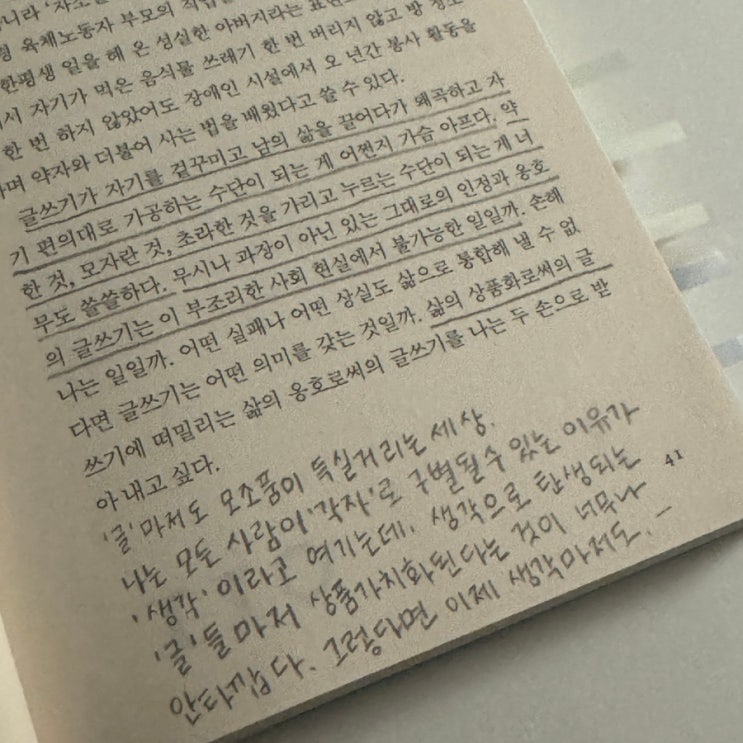 니라 '자소
형 육체노동자 부모의 직업을
한평생 일을 해 온 성실한 아버지라는
서 자기가 먹은 음식물 쓰레기 한 번 버리지 않고 방 청소
한 번 하지 않았어도 장애인 시설에서 오 년간 봉사 활동을
며 약자와 더불어 사는 법을 배웠다고 쓸 수 있다.
글쓰기가 자기를 겉꾸미고 남의 삶을 끌어다가 왜곡하고 자
기 편의대로 가공하는 수단이 되는 게 어쩐지 가슴 아프다. 약
한 것, 모자란 것, 초라한 것을 가리고 누르는 수단이 되는 게 너
무도 쓸쓸하다. 무시나 과장이 아닌 있는 그대로의 인정과 옹호
의 글쓰기는 이 부조리한 사회 현실에서 불가능한 일일까. 손해
나는 일일까. 어떤 실패나 어떤 상실도 삶으로 통합해 낼 수 없
다면 글쓰기는 어떤 의미를 갖는 것일까. 삶의 상품화로써의 글
쓰기에 떠밀리는 삶의 옹호로써의 글쓰기를 나는 두 손으로 받
아 내고 싶다.
'글'마저도 모조품이 득실거리는 세상.
나는 모든 사람이 '각자'로 구별될수 있는 이유가
41
'생각' 이라고 여기는데. 생각으로 탄생되는
'글'들마저 상품가치화된다는 것이 너무나
안타깝다. 그렇다면 이제 생각마저도. _